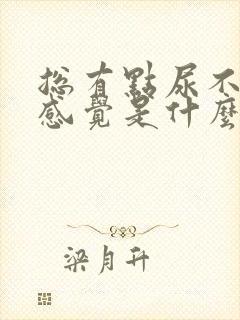 總有點尿不
感覺是什麼
梁月升